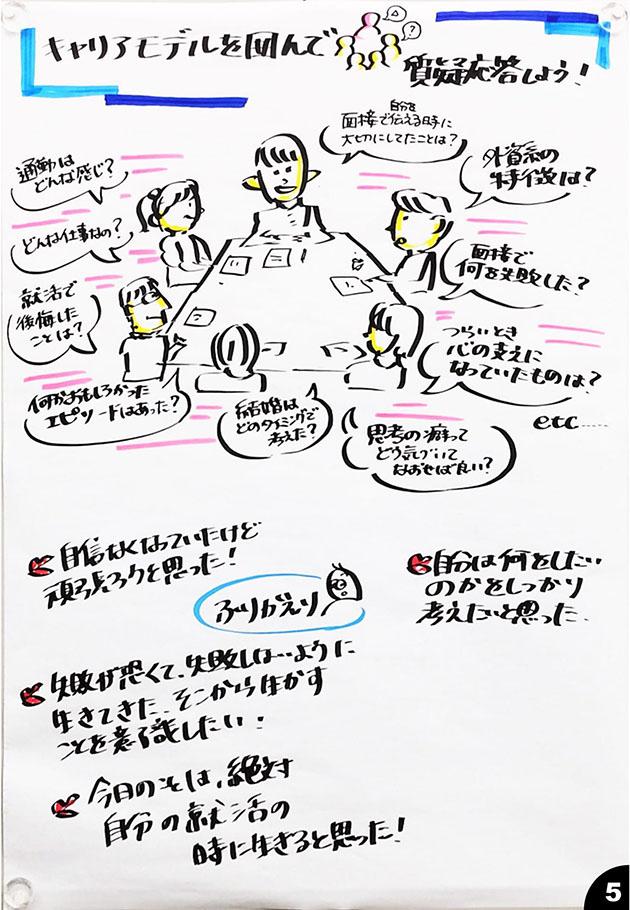 キャリアモデルを囲んで
質疑応答しよう!
?
自分を
面接で伝える時に
大切にしてたことは?
通勤は
どんな感じ?
外資系の
特徴は?
どんな仕事なの?
面接で
何を失敗した?
就活で
後悔した
ことは?
つらいとき
心の支えに
なっていたものは?
何かおもしろかった
エピソードはあった?
結婚は
どのタイミングで
考えた?
思考の癖って
どう気づいて
なおせば良い?
etc.....
自信なくなっていたけど
頑張ろうと思った!
ふりがえり
自分は何をしたい
のかをしっかり
考えたいと思った.
失敗が恐くて、失敗しない ように
生きてきた、そこから生かす
ことを意識したい.
今日のそは、絶対
自分の就活の
時に生きると思った!
5